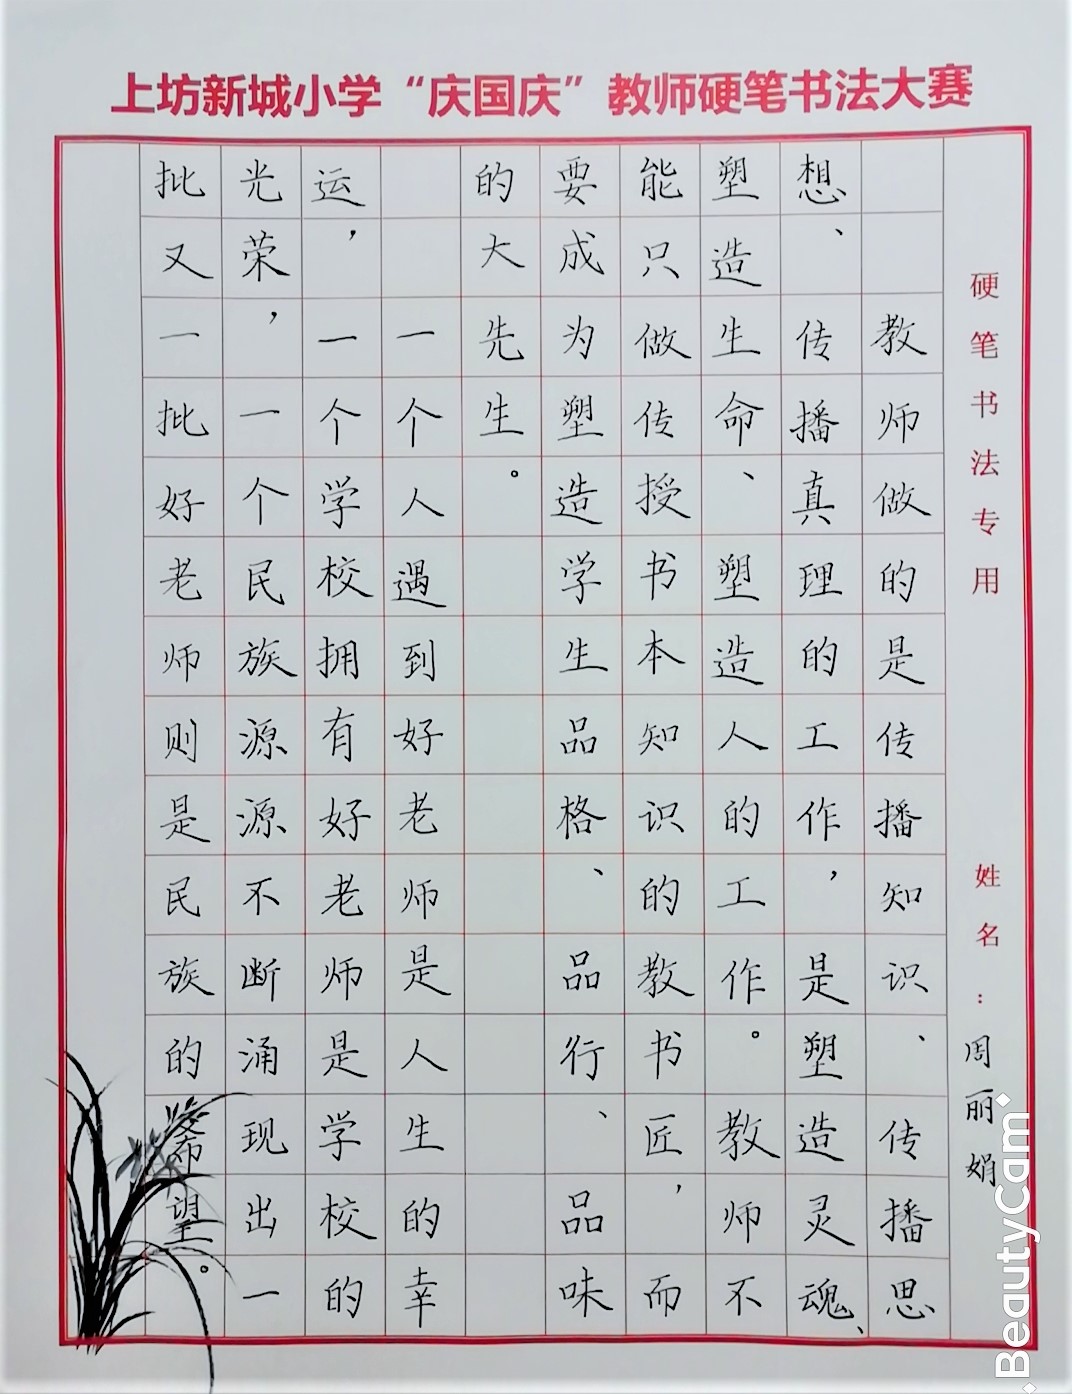 上坊新城小学“庆国庆”教师硬笔书法大赛
硬笔书法专用
姓名：周丽娟
教师做的是传播知识、传播思
想、传播真理的工作，是塑造灵魂、
塑造生命、塑造人的工作。教师不
能只做传授书本知识的教书匠，而
要成为塑造学生品格、品行、品味
的大先生。
一个人遇到好老师是人生的幸
运，一个学校拥有好老师是学校的
光荣，一个民族源源不断涌现出一
批又一批好老师则是民族的希望。
BeautyCam